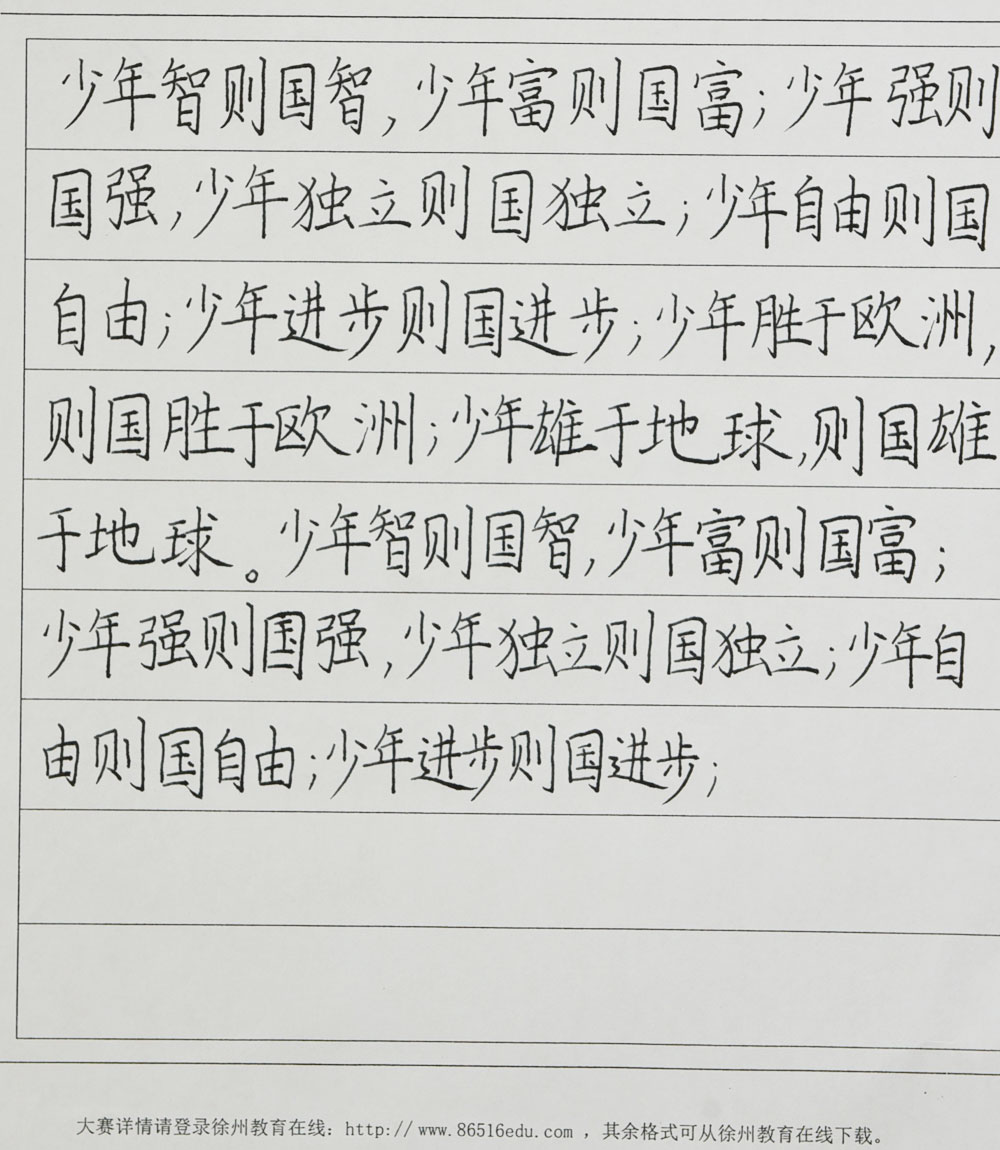 少年智则国智,少年富则国富;少年强则
国强,少年独立则国独立;少年自由则国
自由;少年进步则国进步;少年胜于欧洲,
则国胜于欧洲;少年雄于地球,则国雄
于地球。少年智则国智,少年富则国富;
少年强则国强,少年独立则国独立;少年自
由则国自由;少年进步则国进步;
大赛详情请登录徐州教育在线: http://www.86516edu.com ,其余格式可从徐州教育在线下载。